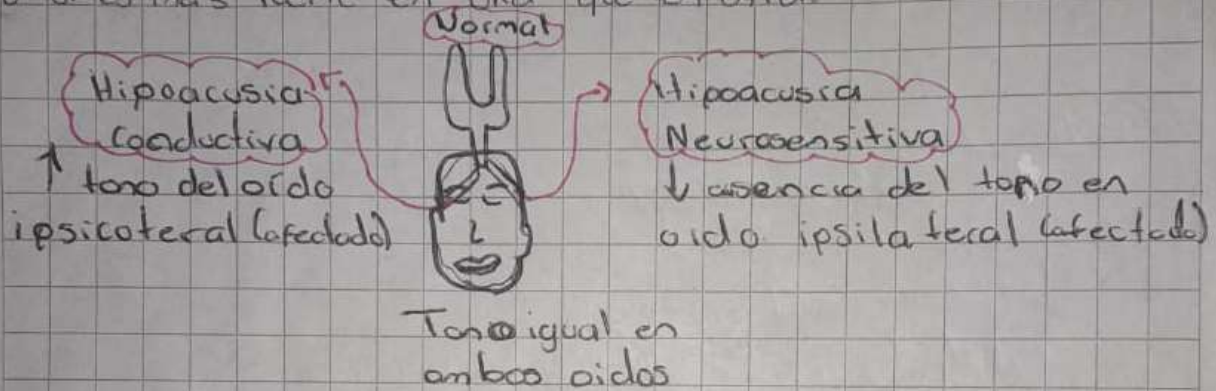 Normal
Hipoacusia
Conductiva
↑ tono del oído
ipsicoteral (afectado)
Hipoacusia
Neurosensitiva
↓ ausencia del tono en
oido ipsilateral (afectado)
Tono igual en
ambos oidos